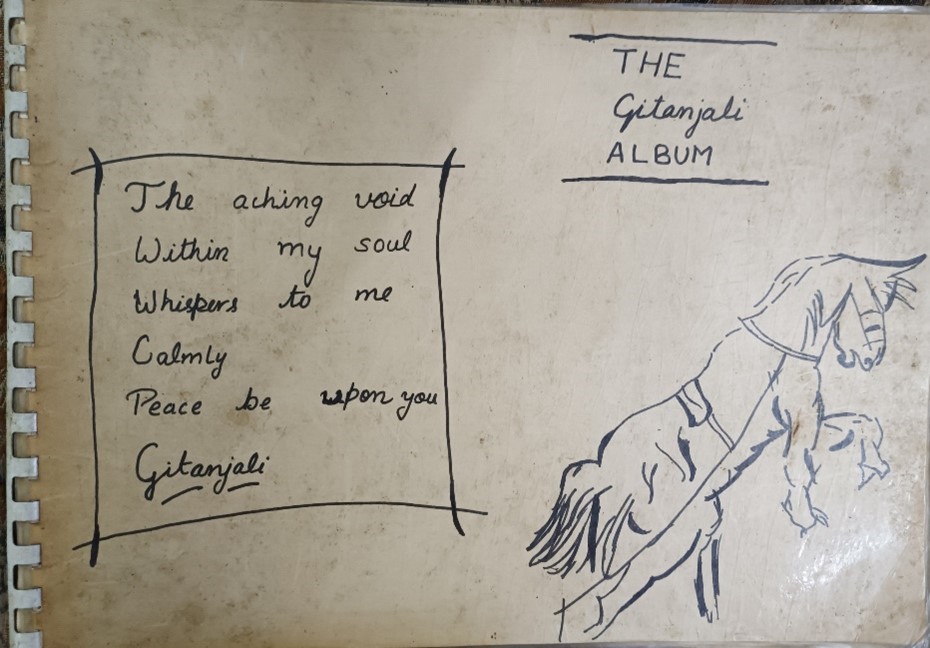 THE
Gitanjali
ALBUM
The aching void
Within my soul
Whispers to me
Calmly
Peace be upon you
Gitanjali